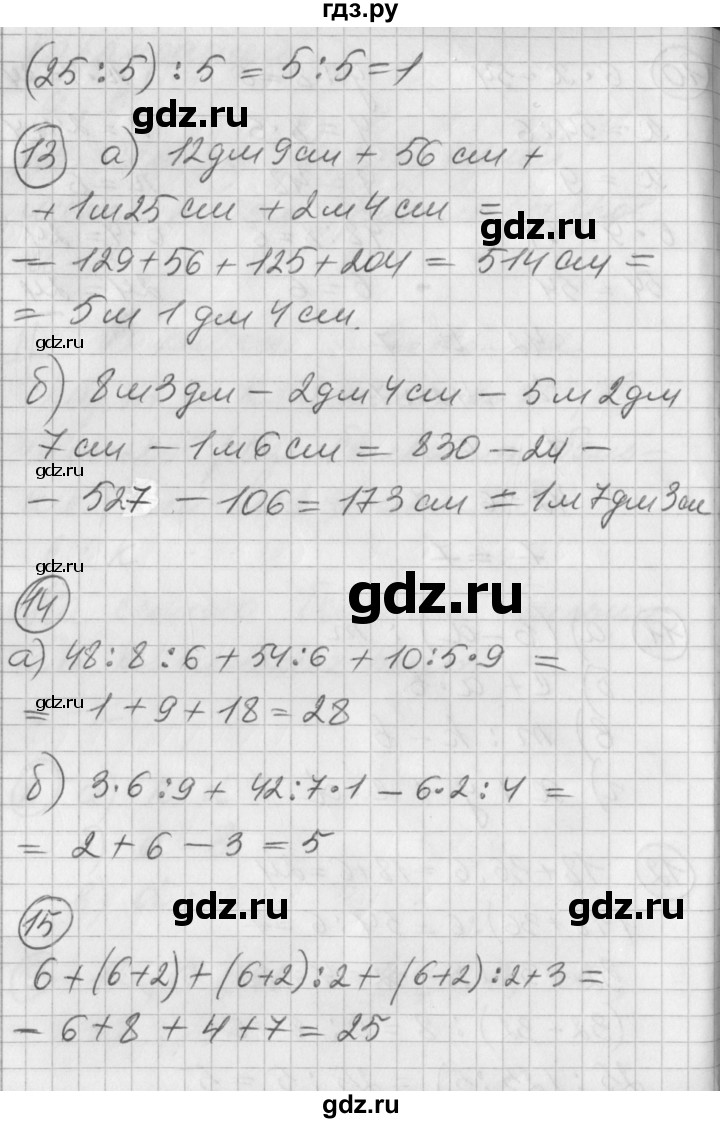 гдз.ру
(25 : 5) : 5 = 5 : 5 = 1
gdz.ru
13 а) 12дм 9см + 56 см +
+ 1м 25 см + 2м 4 см =
gdz.ru
= 129 + 56 + 125 + 204 = 514 см =
= 5м 1 дм 4 см.
gdz.ru
б) 8м 3дм - 2дм 4см - 5м 2дм
7см - 1м 6 см = 830 - 24 -
gdz.ru
- 527 - 106 = 173 см = 1м 7дм 3см
gdz.ru
14
gdz.ru
а) 48 : 8 : 6 + 54 : 6 + 10 : 5 · 9 =
gdz.ru
= 1 + 9 + 18 = 28
б) 3 · 6 : 9 + 42 : 7 · 1 - 6 · 2 : 4 =
gdz.ru
= 2 + 6 - 3 = 5
15
gdz.ru
gdz.ru
6 + (6+2) + (6+2) : 2 + (6+2) : 2 + 3 =
- 6 + 8 + 4 + 7 = 25
gdz.ru